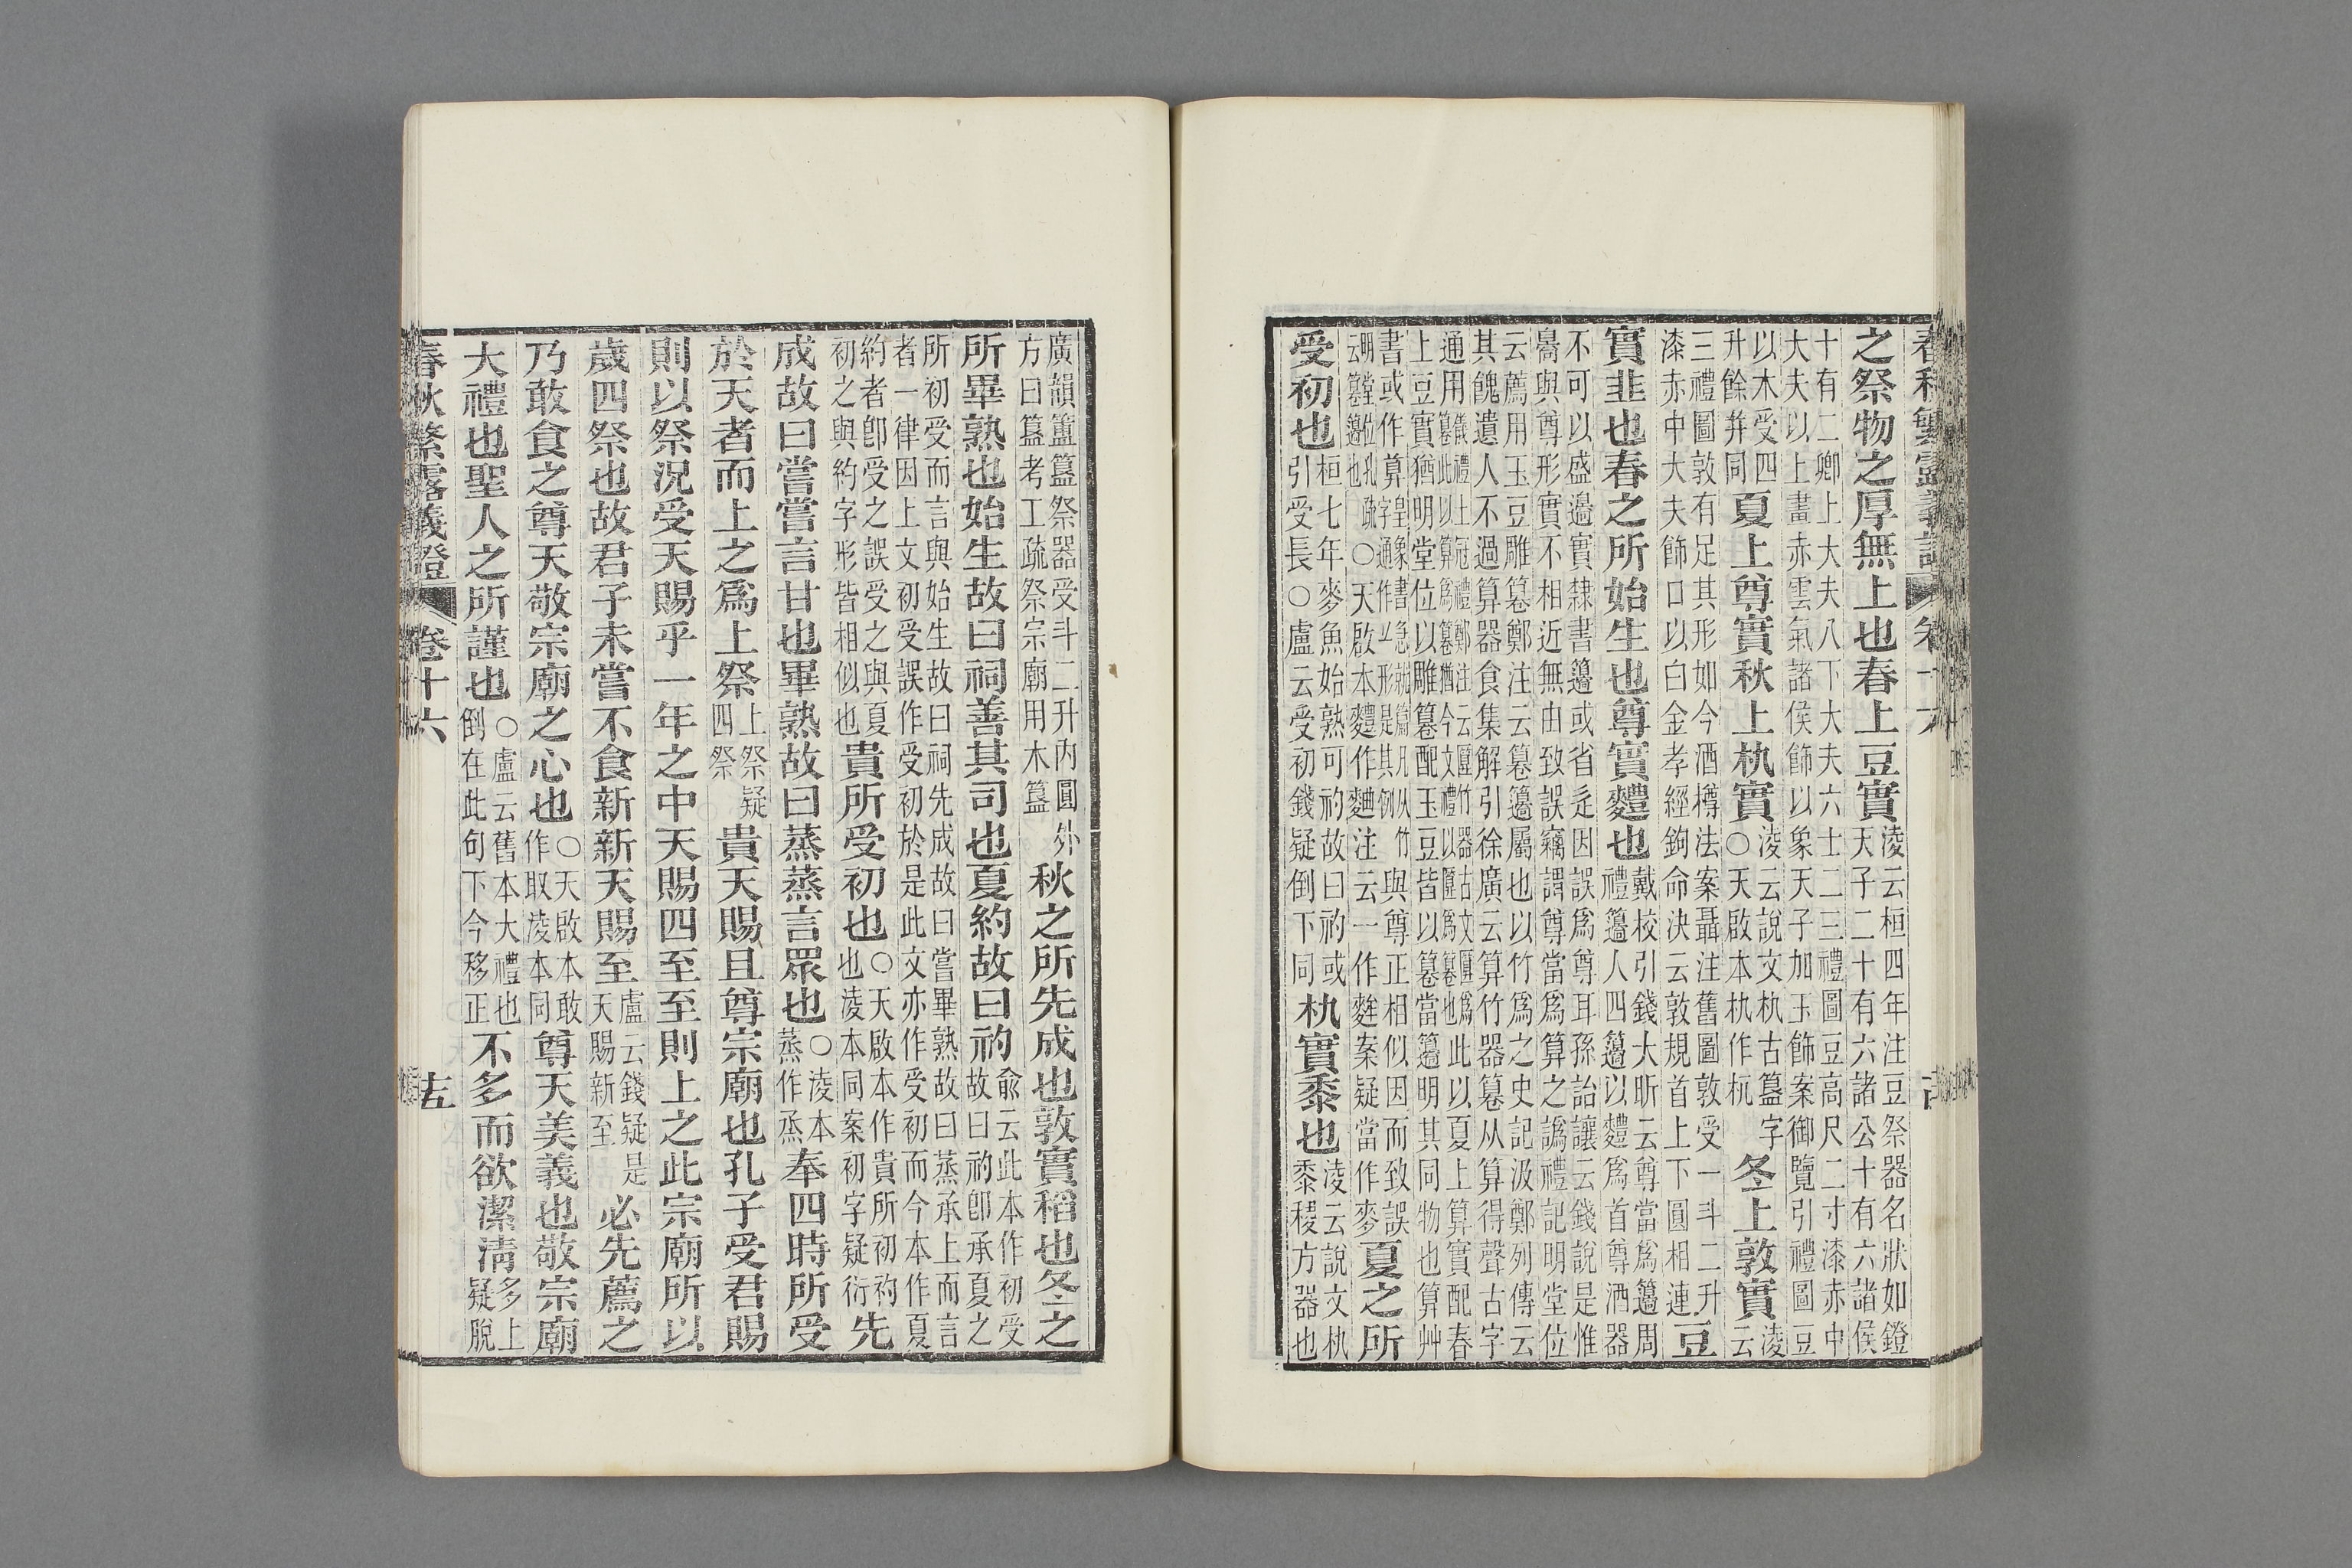 春秋繁露義證 卷十六
之祭物之厚無上也春上豆實淩云桓四年注豆祭器名狀如鐙天子二十有六諸公十有六諸侯
十有二卿上大夫八下大夫六士二三禮圖豆高尺二寸漆赤中大夫以上畫赤雲氣諸侯飾以象天子加玉飾案御覽引禮圖豆
以木受四升餘并同夏上尊實秋上朹實淩云說文朹古簋字○天啟本朹作杬冬上敦實淩云
三禮圖敦有足其形如今酒樽法案聶注舊圖敦受一斗二升漆赤中大夫飾口以白金孝經鉤命決云敦規首上下圓相連豆
實韭也春之所始生也尊實麷也戴校引錢大昕云尊當爲籩周禮籩人四籩以麷爲首尊酒器
不可以盛邊實隸書籩或省辵因誤爲尊耳孫詒讓云錢說是惟臱與尊形實不相近無由致誤竊謂尊當爲算之譌禮記明堂位
云薦用玉豆雕篹鄭注云篹籩屬也以竹爲之史記汲鄭列傳云其餽遺人不過算器食集解引徐廣云算竹器篹从算得聲古字
通用儀禮士冠禮鄭注云匴竹器古文匴爲篹此以算爲篹猶今文禮以匴爲篹也此以夏上算實配春上豆實猶明堂位以雕篹配玉豆皆以篹當籩明其同物也算艸
書或作算皇象書急就篇凡从竹字通作艹形是其例與尊正相似因而致誤明堂位孔疏云篹籩也○天啟本麷作麯注云一作麰案疑當作麥夏之所
受初也桓七年麥魚始熟可礿故曰礿或引受長○盧云受初錢疑倒下同朹實黍也淩云說文朹黍稷方器也
廣韻簠簋祭器受斗二升內圓外方曰簋考工疏祭宗廟用木簋秋之所先成也敦實稻也冬之
所畢熟也始生故曰祠善其司也夏約故曰礿兪云此本作初受故曰礿卽承夏之
所初受而言與始生故曰祠先成故曰嘗畢熟故曰蒸承上而言者一律因上文初受誤作受初於是此文亦作受初而今本作夏
約者卽受之誤受之與夏初之與約字形皆相似也貴所受初也○天啟本作貴所初礿也淩本同案初字疑衍先
成故曰嘗嘗言甘也畢熟故曰蒸蒸言眾也○淩本蒸作烝奉四時所受
於天者而上之爲上祭上祭疑四祭貴天賜且尊宗廟也孔子受君賜
則以祭況受天賜乎一年之中天賜四至至則上之此宗廟所以
歲四祭也故君子未嘗不食新新天賜至盧云錢疑是天賜新至必先薦之
乃敢食之尊天敬宗廟之心也○天啟本敢作取淩本同尊天美義也敬宗廟
大禮也聖人之所謹也○盧云舊本大禮也倒在此句下今移正不多而欲潔清多上疑脫
春秋繁露義證 卷十六 十五